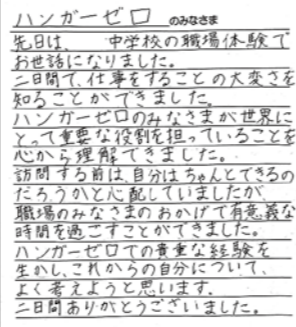 ハンガーゼロ のみなさま
先日は、 中学校の職場体験で
お世話になりました。
二日間で、仕事をすることの大変さを
知ることができました。
ハンガーゼロのみなさまが世界に
とって重要な役割を担っていることを
心から理解できました。
訪問する前は、自分はちゃんとできるの
だろうかと心配していましたが
職場のみなさまのおかげで有意義な
時間を過ごすことができました。
ハンガーゼロでの貴重な経験を
生かし、これからの自分について、
よく考えようと思います。
二日間ありがとうございました。